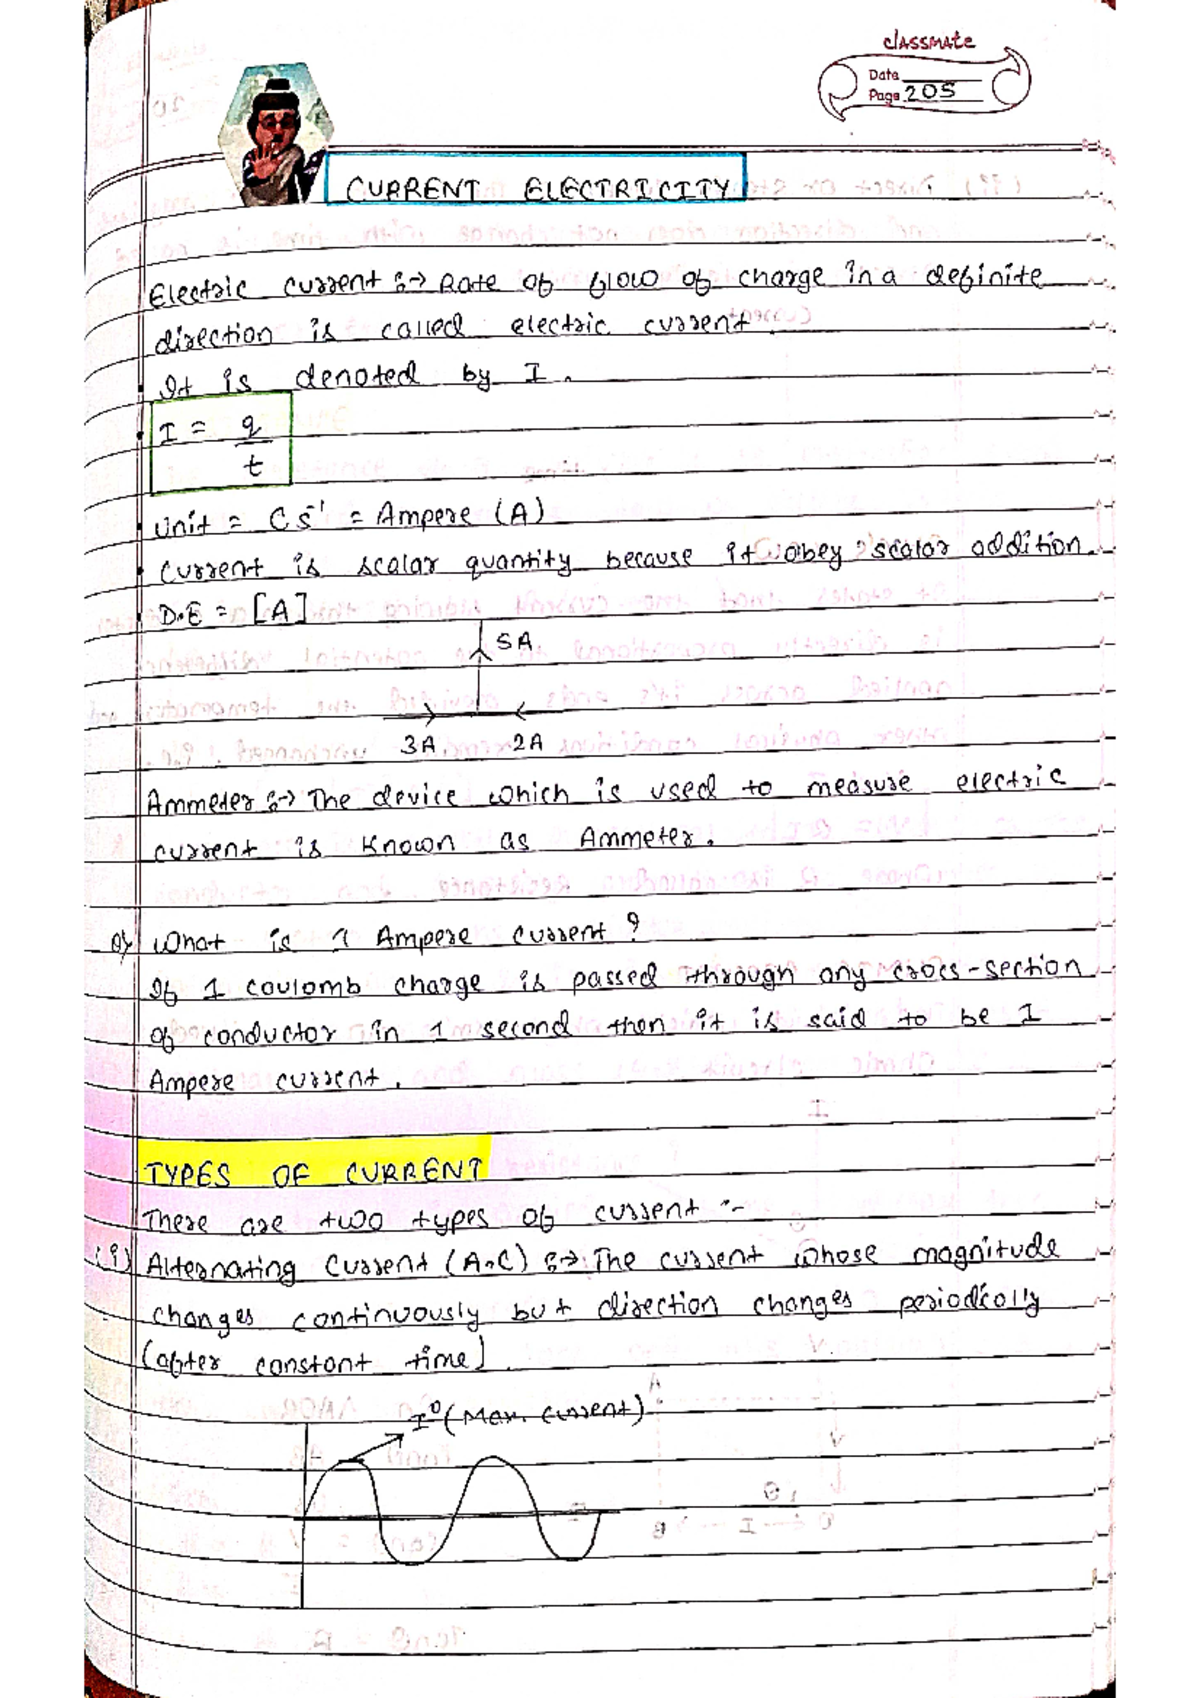 classmate
Date
Page 205
CURRENT ELECTRICITY
Electric current :→ Rate of flow of charge in a definite
direction is called electric current.
• It is denoted by I.
• I = q/t
• Unit = C s⁻¹ = Ampere (A)
• Current is scalar quantity because it obey scalar addition.
• D.E = [A]
5A
3A 2A
Ammeter :→ The device which is used to measure electric
current is known as Ammeter.
Q) What is 1 Ampere current ?
If 1 coulomb charge is passed through any cross-section
of conductor in 1 second then it is said to be 1
Ampere current.
TYPES OF CURRENT
There are two types of current :-
(i) Alternating Current (A.C) :→ The current whose magnitude
changes continuously but direction changes periodically
(after constant time).
I⁰ (Max. current)